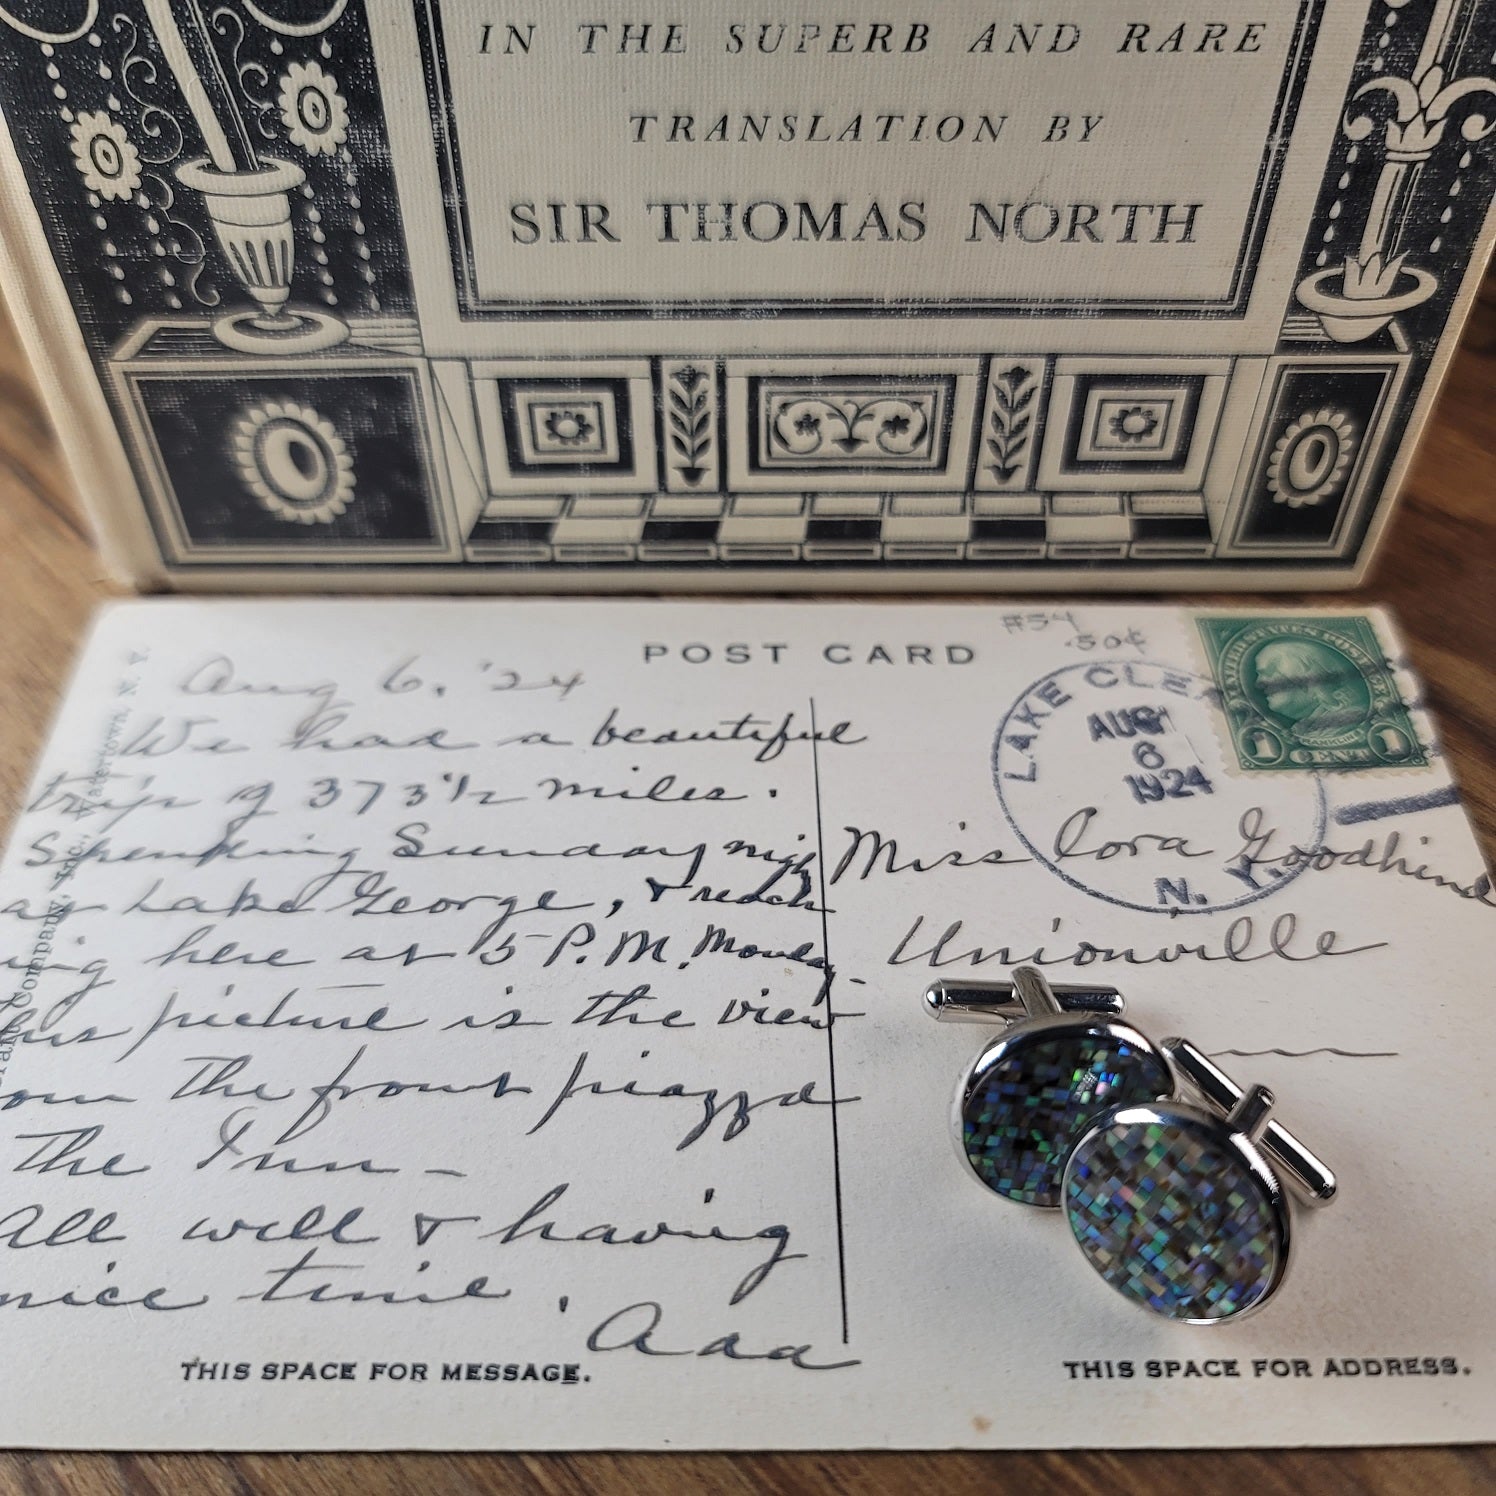 IN THE SUPERB AND RARE
TRANSLATION BY
SIR THOMAS NORTH
POST CARD
#54
.50¢
Aug 6, '24
We had a beautiful
trip of 373 1/2 miles.
Spending Sunday nigh
at Lake George, & reach
ing here at 5 P.M. Monday.
this picture is the view
from the front piazza
the Inn -
All well & having
nice time.
Ada
THIS SPACE FOR MESSAGE.
Company, Inc., Watertown, N. Y.
LAKE CLEA
AUG
6
1924
N. Y.
UNITED STATES POSTAGE
FRANKLIN
1 CENT 1
Miss Cora Goodhind
Unionville
THIS SPACE FOR ADDRESS.